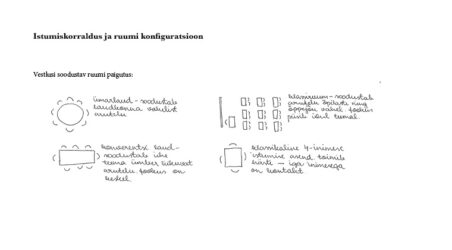 Istumiskorraldus ja ruumi konfiguratsioon
Vestlusi soodustav ruumi paigutus:
ümarlaud - soodustab
laudkonna vahelist
arutelu
klassiruum - soodustab
arutelu õpilaste ning
õppejõu vahel. fookus
püsti oleval
konverentsi laud -
soodustab ühe
teema ümber liikuvat
arutelu, fookus on
keskel
klassikaline 4-inimese
istumise asend, toimib
hästi - iga inimesega
on kontakt